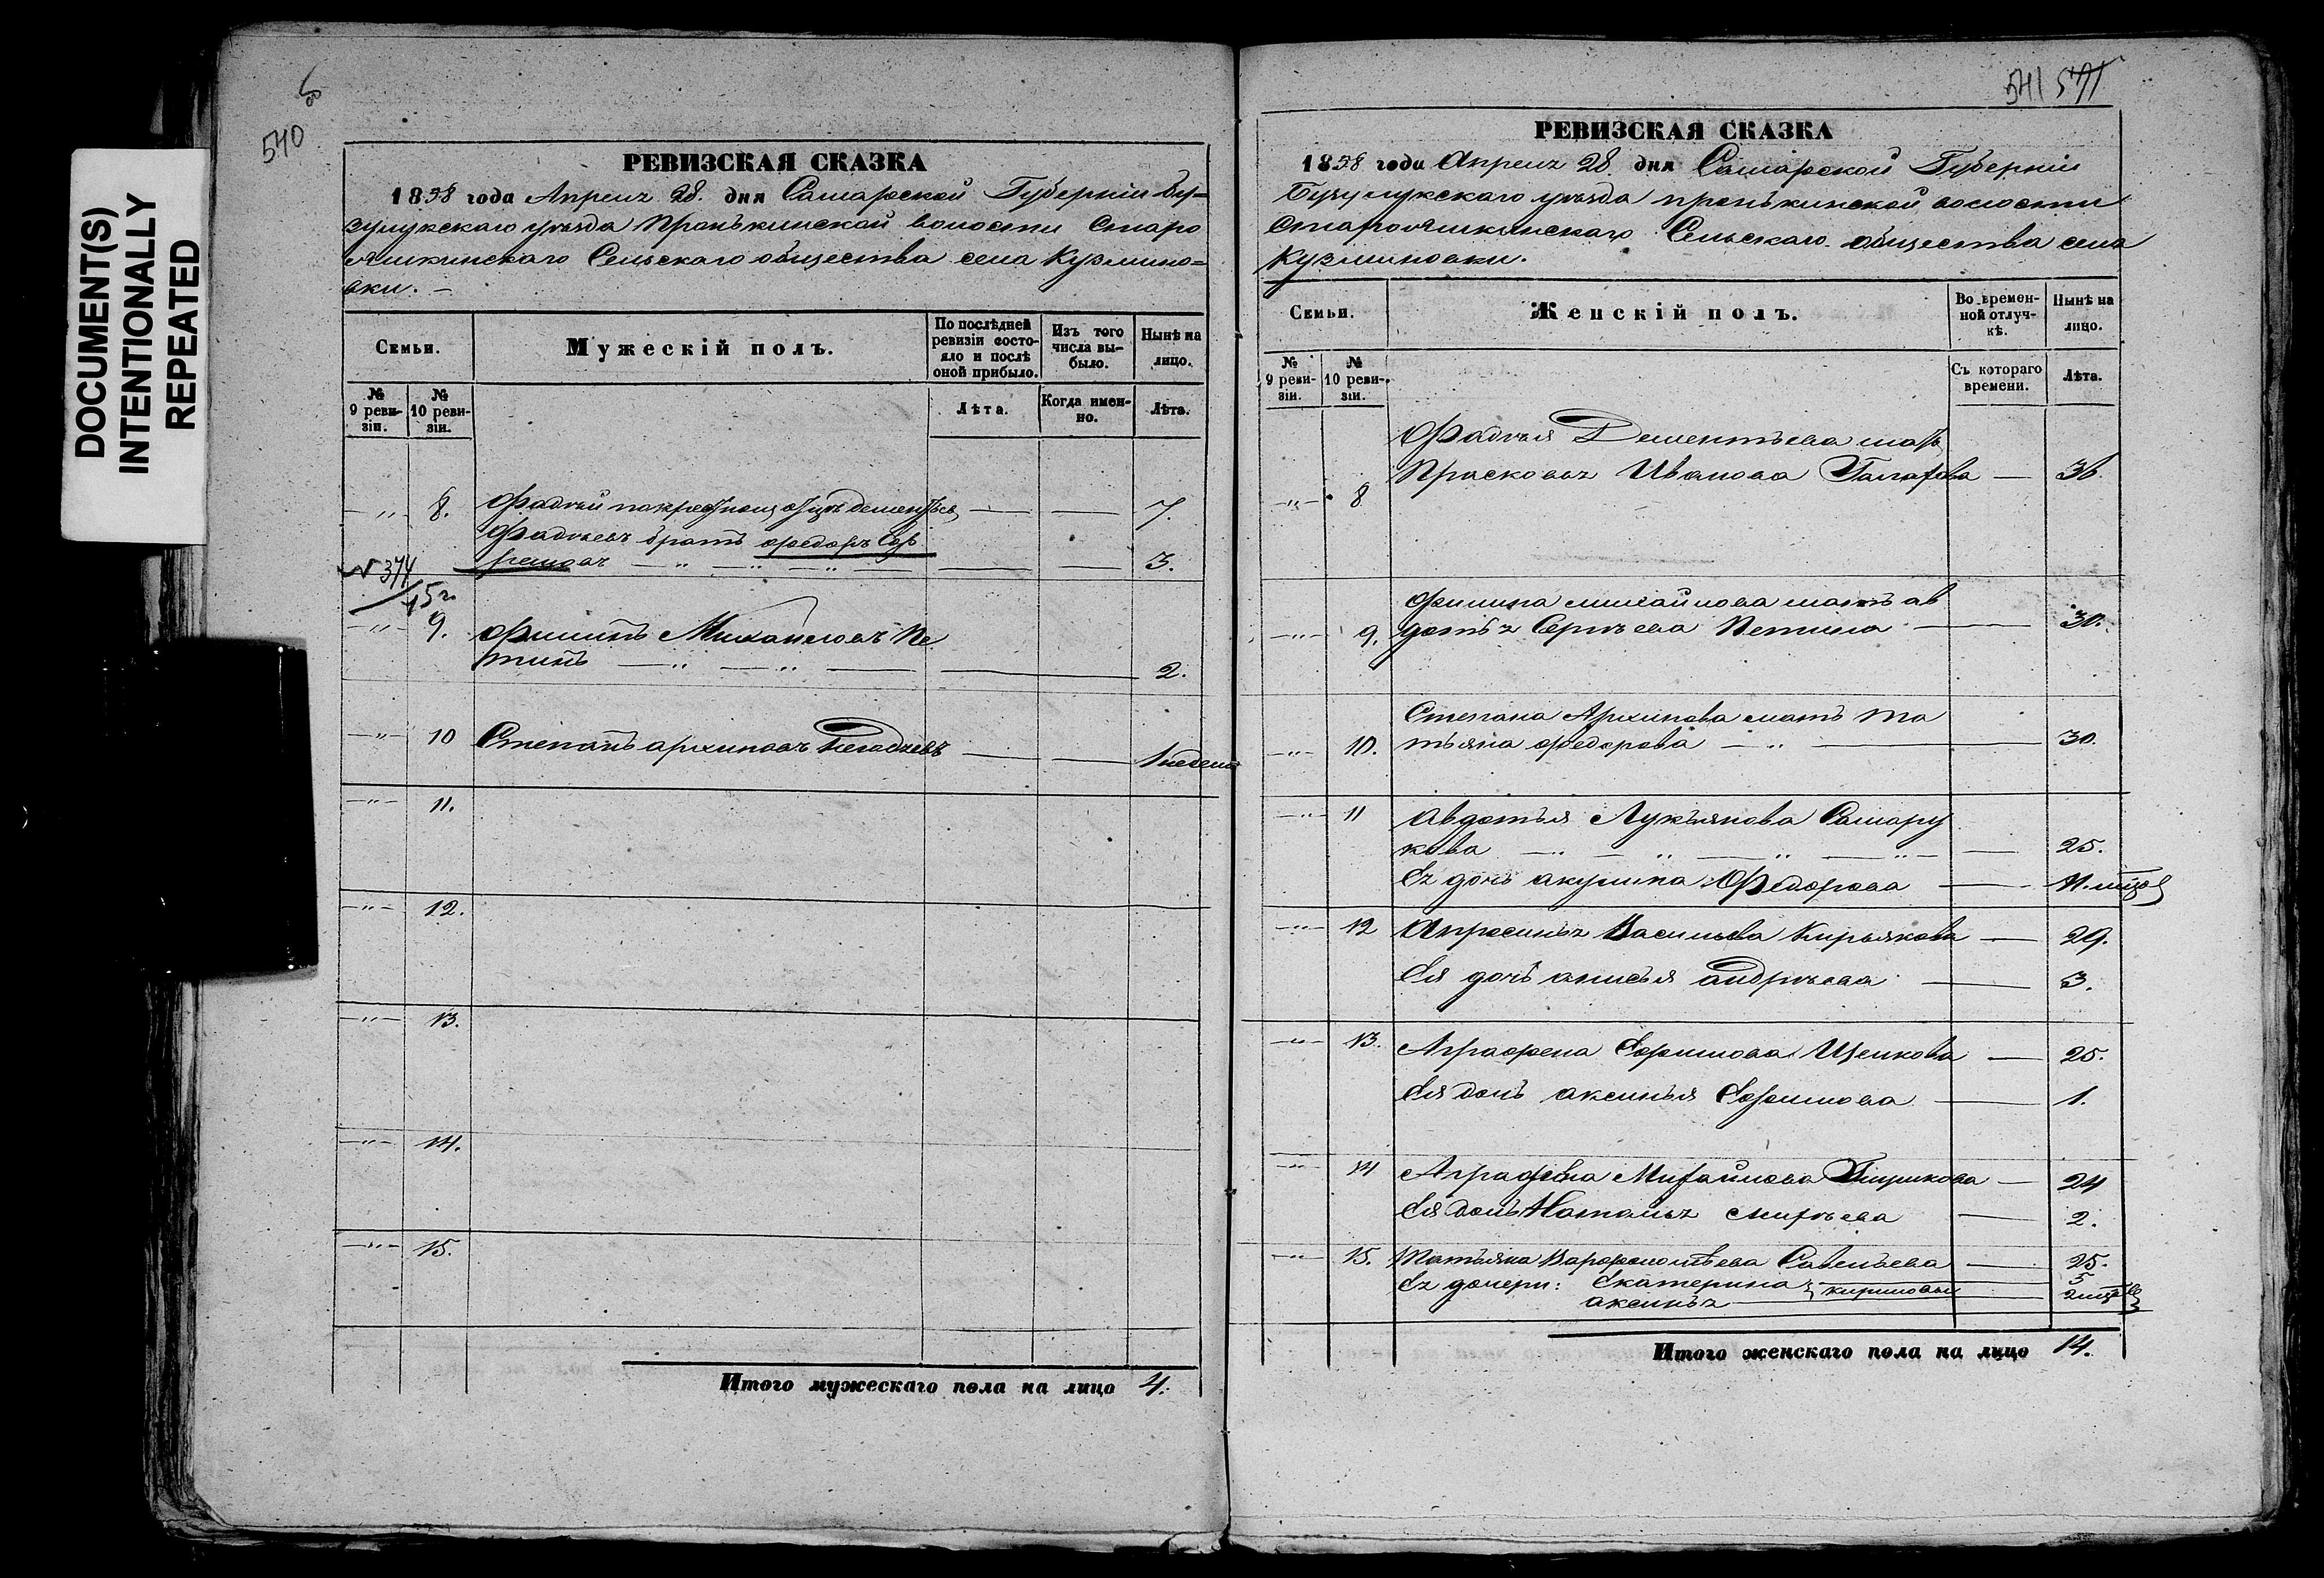 DOCUMENT(S)
INTENTIONALLY
REPEATED
540
РЕВИЗСКАЯ СКАЗКА
1858 года Апреля 28. дня Самарской Губерніи Бу-
зулукскаго уѣзда Пронькинской волости Старо
Ашкинскаго Сельскаго общества села Кузмино=
вки. —
Семьи.
Мужескій полъ.
По послѣдней ревизіи состо-яло и послѣ оной прибыло.
Изъ того числа вы-было.
Нынѣ на лицо.
№ 9 реви-зіи.
№ 10 реви-зіи.
Лѣта.
Когда имен-но.
Лѣта.
— " — 8. Фадѣй по крестному отцу Дементьевъ — — 7.
Фадѣевъ братъ Федоръ Еф
ремовъ — " — " — " — — — 3.
№ 374
15 г.
— " — 9. Филипъ Михайловъ Пе
тинъ — " — " — — 2.
— " — 10 Степанъ Архиповъ — — 1 недели
— " — 11.
— " — 12.
— " — 13.
— " — 14.
— " — 15.
Итого мужескаго пола на лицо 4.
541 571
РЕВИЗСКАЯ СКАЗКА
1858 года Апреля 28. дня Самарской Губерніи
Бузулукскаго уѣзда Пронькинской волости
СтароАшкинскаго Сельскаго общества села
Кузминовки.
Семьи.
Женскій полъ.
Во времен-ной отлуч-кѣ.
Нынѣ на лицо.
№ 9 реви-зіи.
№ 10 реви-зіи.
Съ котораго времени.
Лѣта.
Фадѣя Дементьева мать
— " — 8 Прасковья Иванова — 36
Филипа Михайлова мать Ав
— " — 9. дотья Сергѣева Петина — 30.
Степана Архипова мать Та
— " — 10. тьяна Федорова — " — 30.
— " — 11 Авдотья Лукьянова Самару
кова — " — " — " — " — — 25.
Ея дочь Акулина Федорова — 11. мѣсяц
— " — 12 Апросинья Васильева Кирьякова — 29.
Ея дочь Анисья Андрѣева — 3.
— " — 13. Аграфена Ефимова Щелкова — 25.
Ея дочь Аксинья Ефимова — 1.
— " — 14 Аграфена Михайлова — 24
Ея дочь Наталья — 2.
— " — 15. Татьяна Варфоломѣева Савельева — 25.
Ея дочери: Екатерина } Кириловы — 5
Аксинья — 2 мѣсяц
Итого женскаго пола на лицо 14.